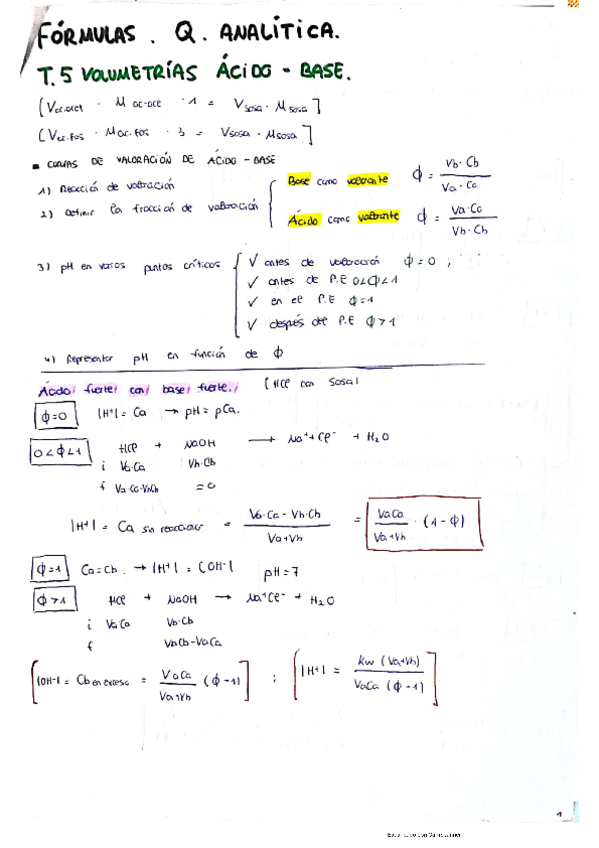 FÓRMULAS. Q. ANALÍTICA.
T.5 VOLUMETRÍAS ÁCIDO-BASE.
[Vac.acet · Mac-ace · 1 = Vsosa · Msosa]
[Vac.fos · Mac.fos · 3 = Vsosa · Msosa]
▪ CURVAS DE VALORACIÓN DE ÁCIDO-BASE
1) Reacción de valoración
2) Definir la fracción de valoración
Base como valorante ϕ = Vb·Cb / Va·Ca
Ácido como valorante ϕ = Va·Ca / Vb·Cb
3) pH en varios puntos críticos
✓ antes de valoración ϕ=0 ;
✓ antes de P.E 0<ϕ<1
✓ en el P.E ϕ=1
✓ después del P.E ϕ>1
4) Representar pH en función de ϕ
Ácido fuerte con base fuerte. (HCl con sosa)
ϕ=0 |H+|= Ca → pH = pCa.
0<ϕ<1 HCl + NaOH → Na+ + Cl- + H2O
i Va·Ca Vb·Cb
f Va·Ca-VbCb =0
|H+| = Ca sin reaccionar = Va·Ca - Vb·Cb / Va+Vb = VaCa / Va+Vb · (1-ϕ)
ϕ=1 Ca=Cb. → |H+| = |OH-| pH=7
ϕ>1 HCl + NaOH → Na+Cl- + H2O
i VaCa Vb·Cb
f VbCb-VaCa
[|OH-| = Cb en exceso = VaCa / Va+Vb (ϕ-1)] ; [|H+| = Kw (Va+Vb) / VaCa (ϕ-1)]
1